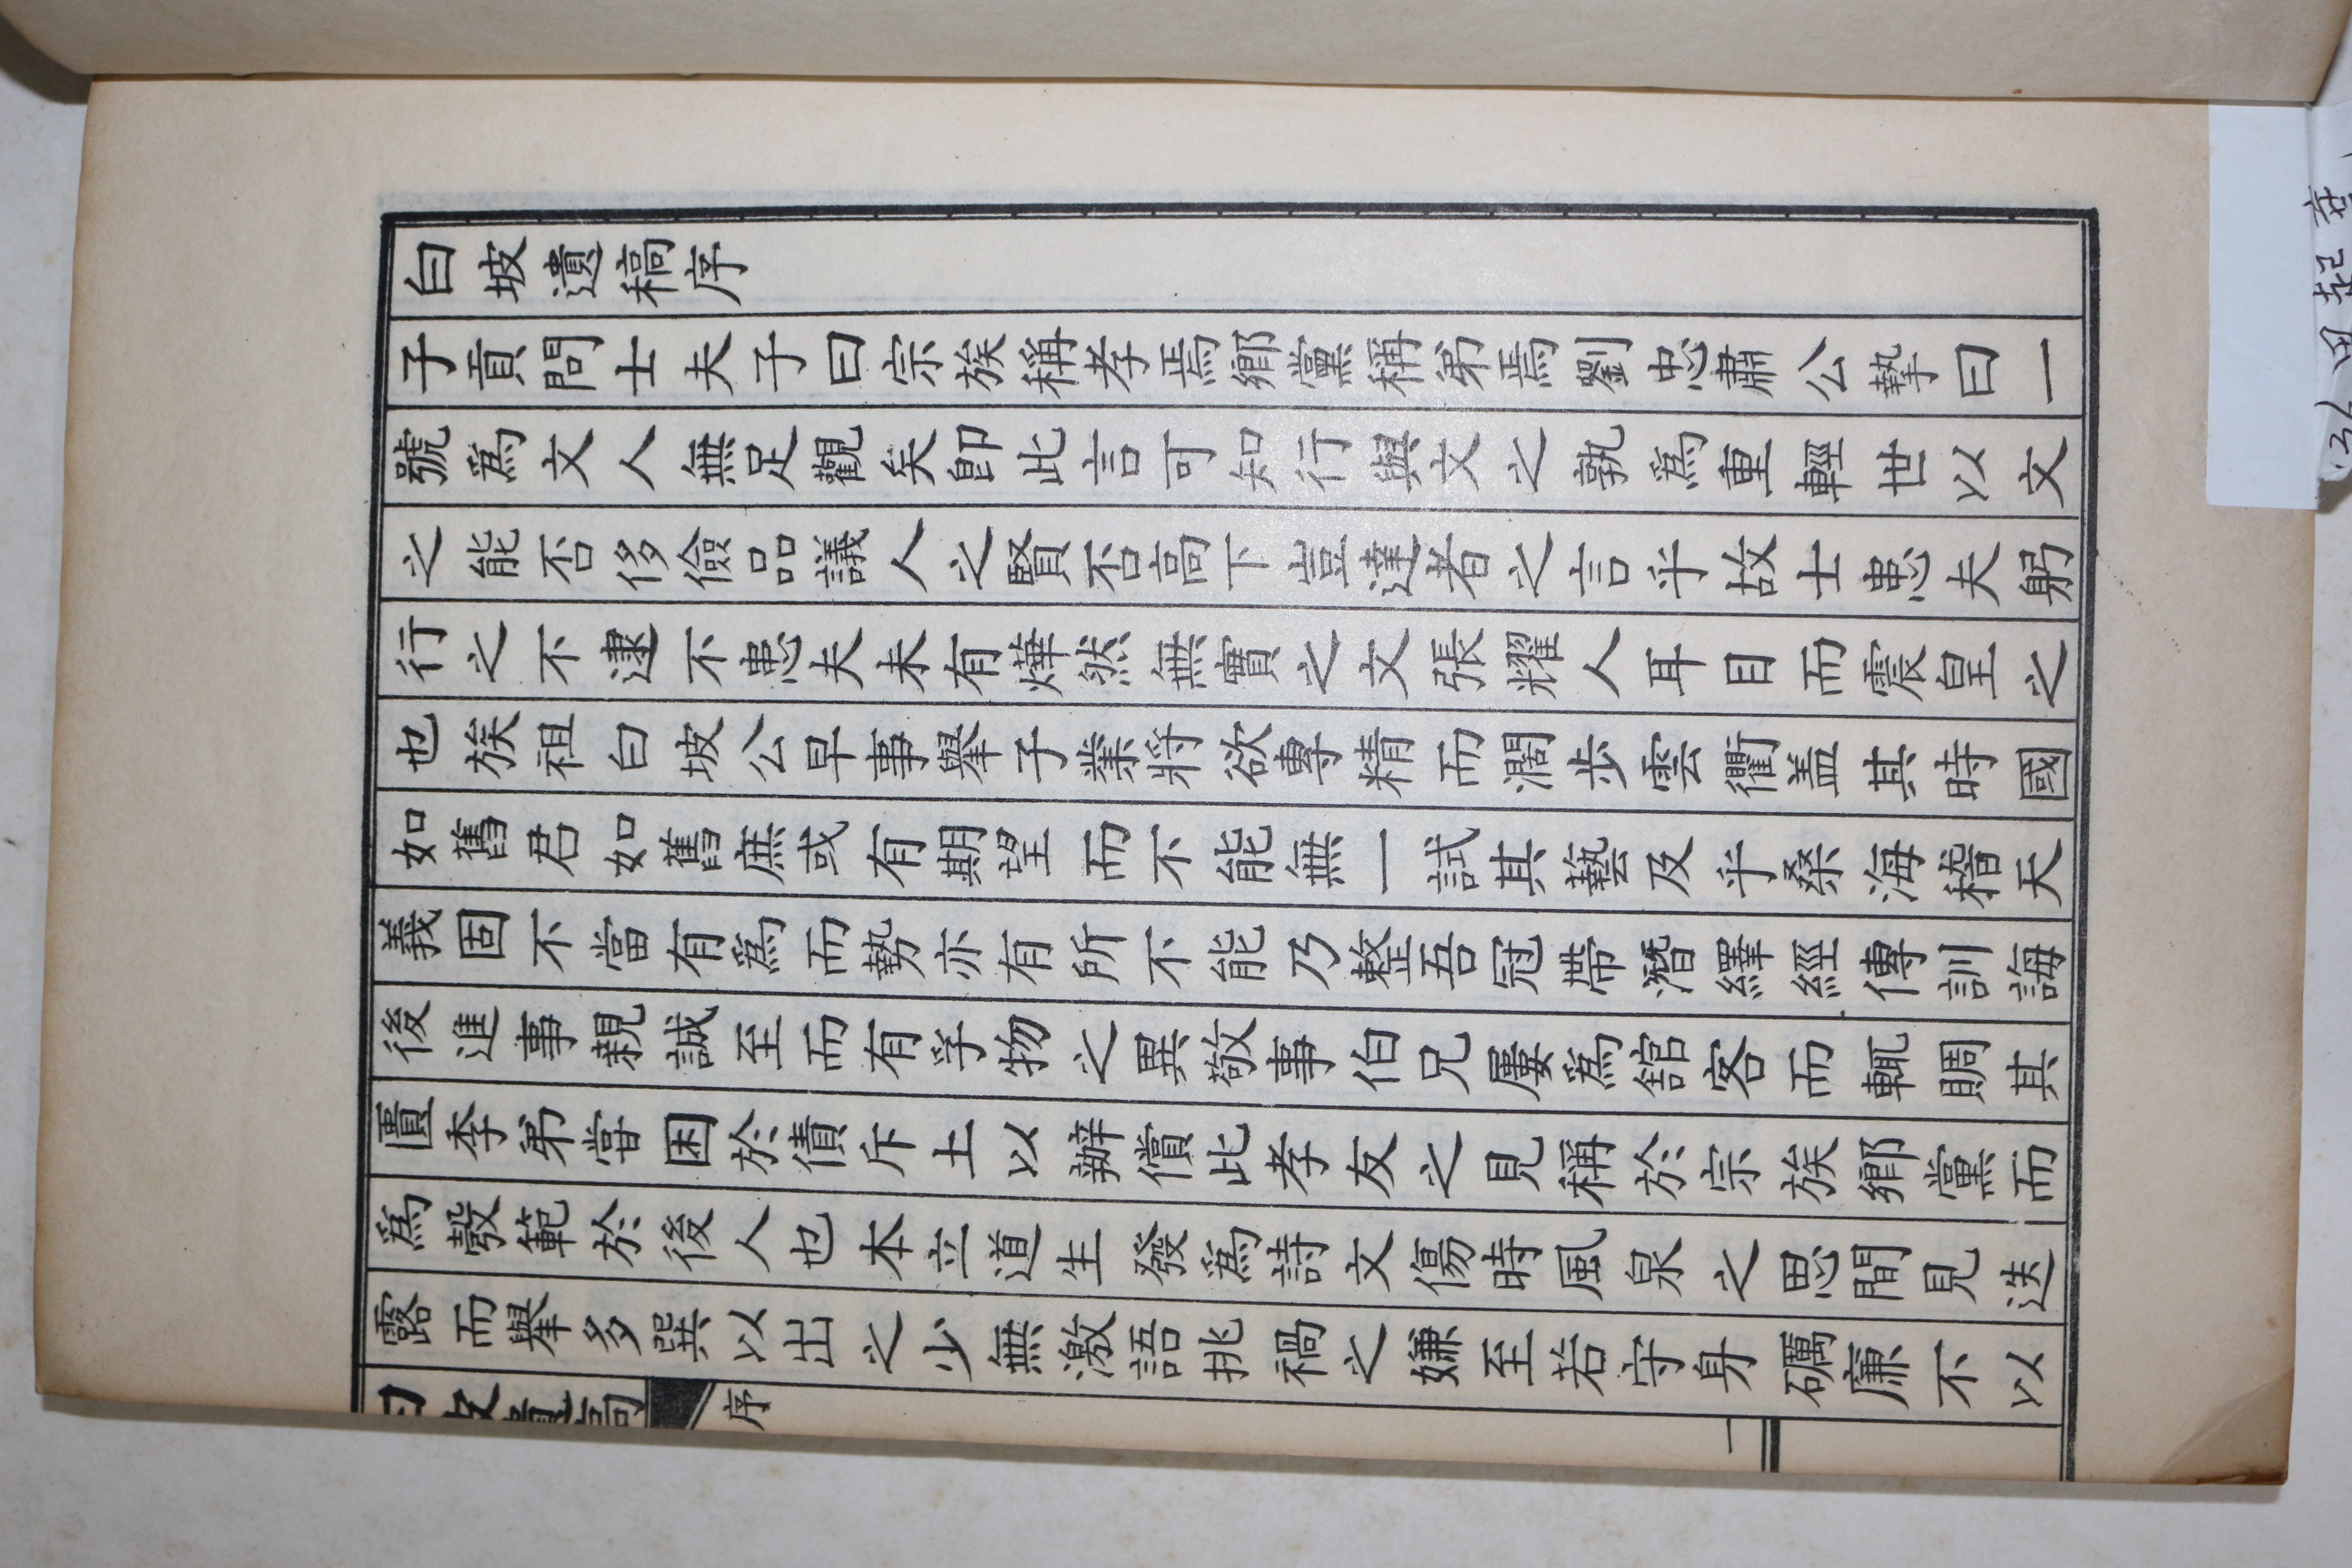 白坡遺稿序
子貢問士夫子曰宗族稱孝焉鄉黨稱弟焉劉忠肅公摯曰一
號爲文人無足觀矣卽此言可知行與文之孰爲重輕世以文
之能否侈儉品議人之賢否高下豈達者之言乎故士患夫躬
行之不逮不患夫未有燁然無實之文張耀人耳目而震皇之
也族祖白坡公早事擧子業將欲專精而濶步雲衢盖其時國
如舊君如舊庶或有期望而不能無一試其藝及乎桑海稽天
義固不當有爲而勢亦有所不能乃整吾冠帶潛繹經傳訓誨
後進事親誠至而有孚物之異敬事伯兄屢爲舘客而輒賙其
匱季弟甞困於債斥土以辦償此孝友之見稱於宗族鄉黨而
爲彀範於後人也本立道生發爲詩文傷時風泉之思間見迭
露而擧多巽以出之少無激語挑禍之嫌至若守身礪廉不以
白坡遺稿 序 一